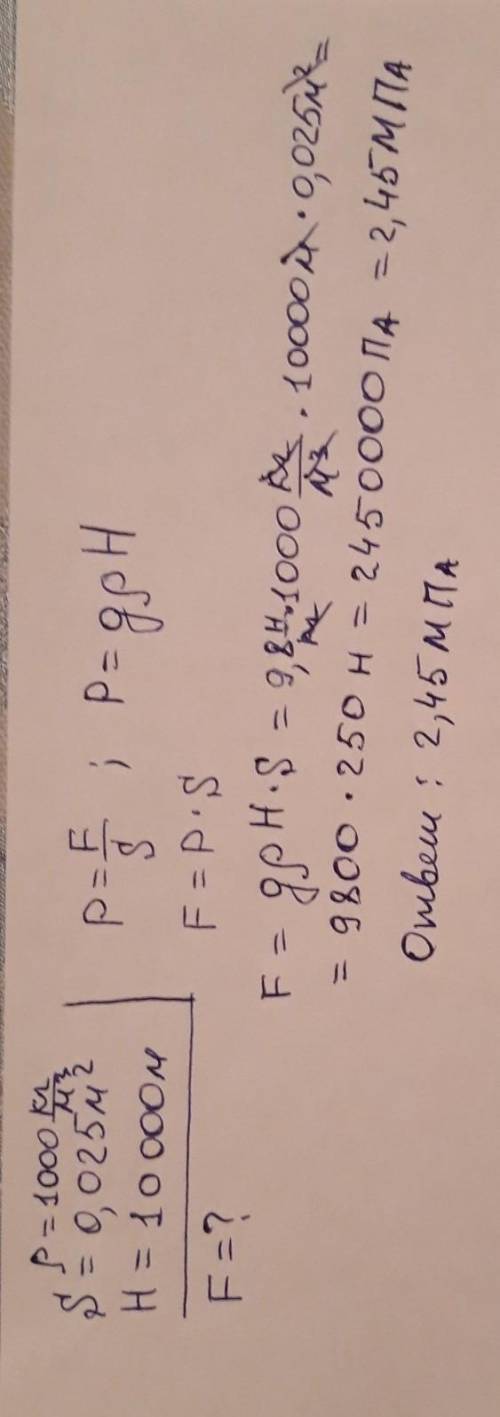 ρ = 1000 кг/м³
S = 0,025 м²
H = 10 000 м
F = ?
P = F/S ; P = gρH
F = P · S
F = gρH · S = 9,8 Н/кг · 1000 кг/м³ · 10000 м · 0,025 м² =
= 9800 · 250 Н = 2450000 ПА = 2,45 МПА
Ответ : 2,45 МПА